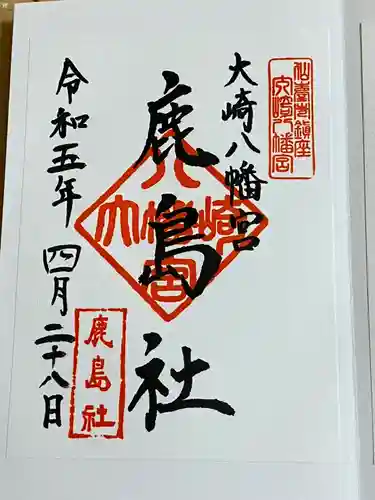 仙臺市鎮座
大崎八幡宮
大崎八幡宮
鹿島社
大崎八幡宮
鹿島社
令和五年 四月二十八日